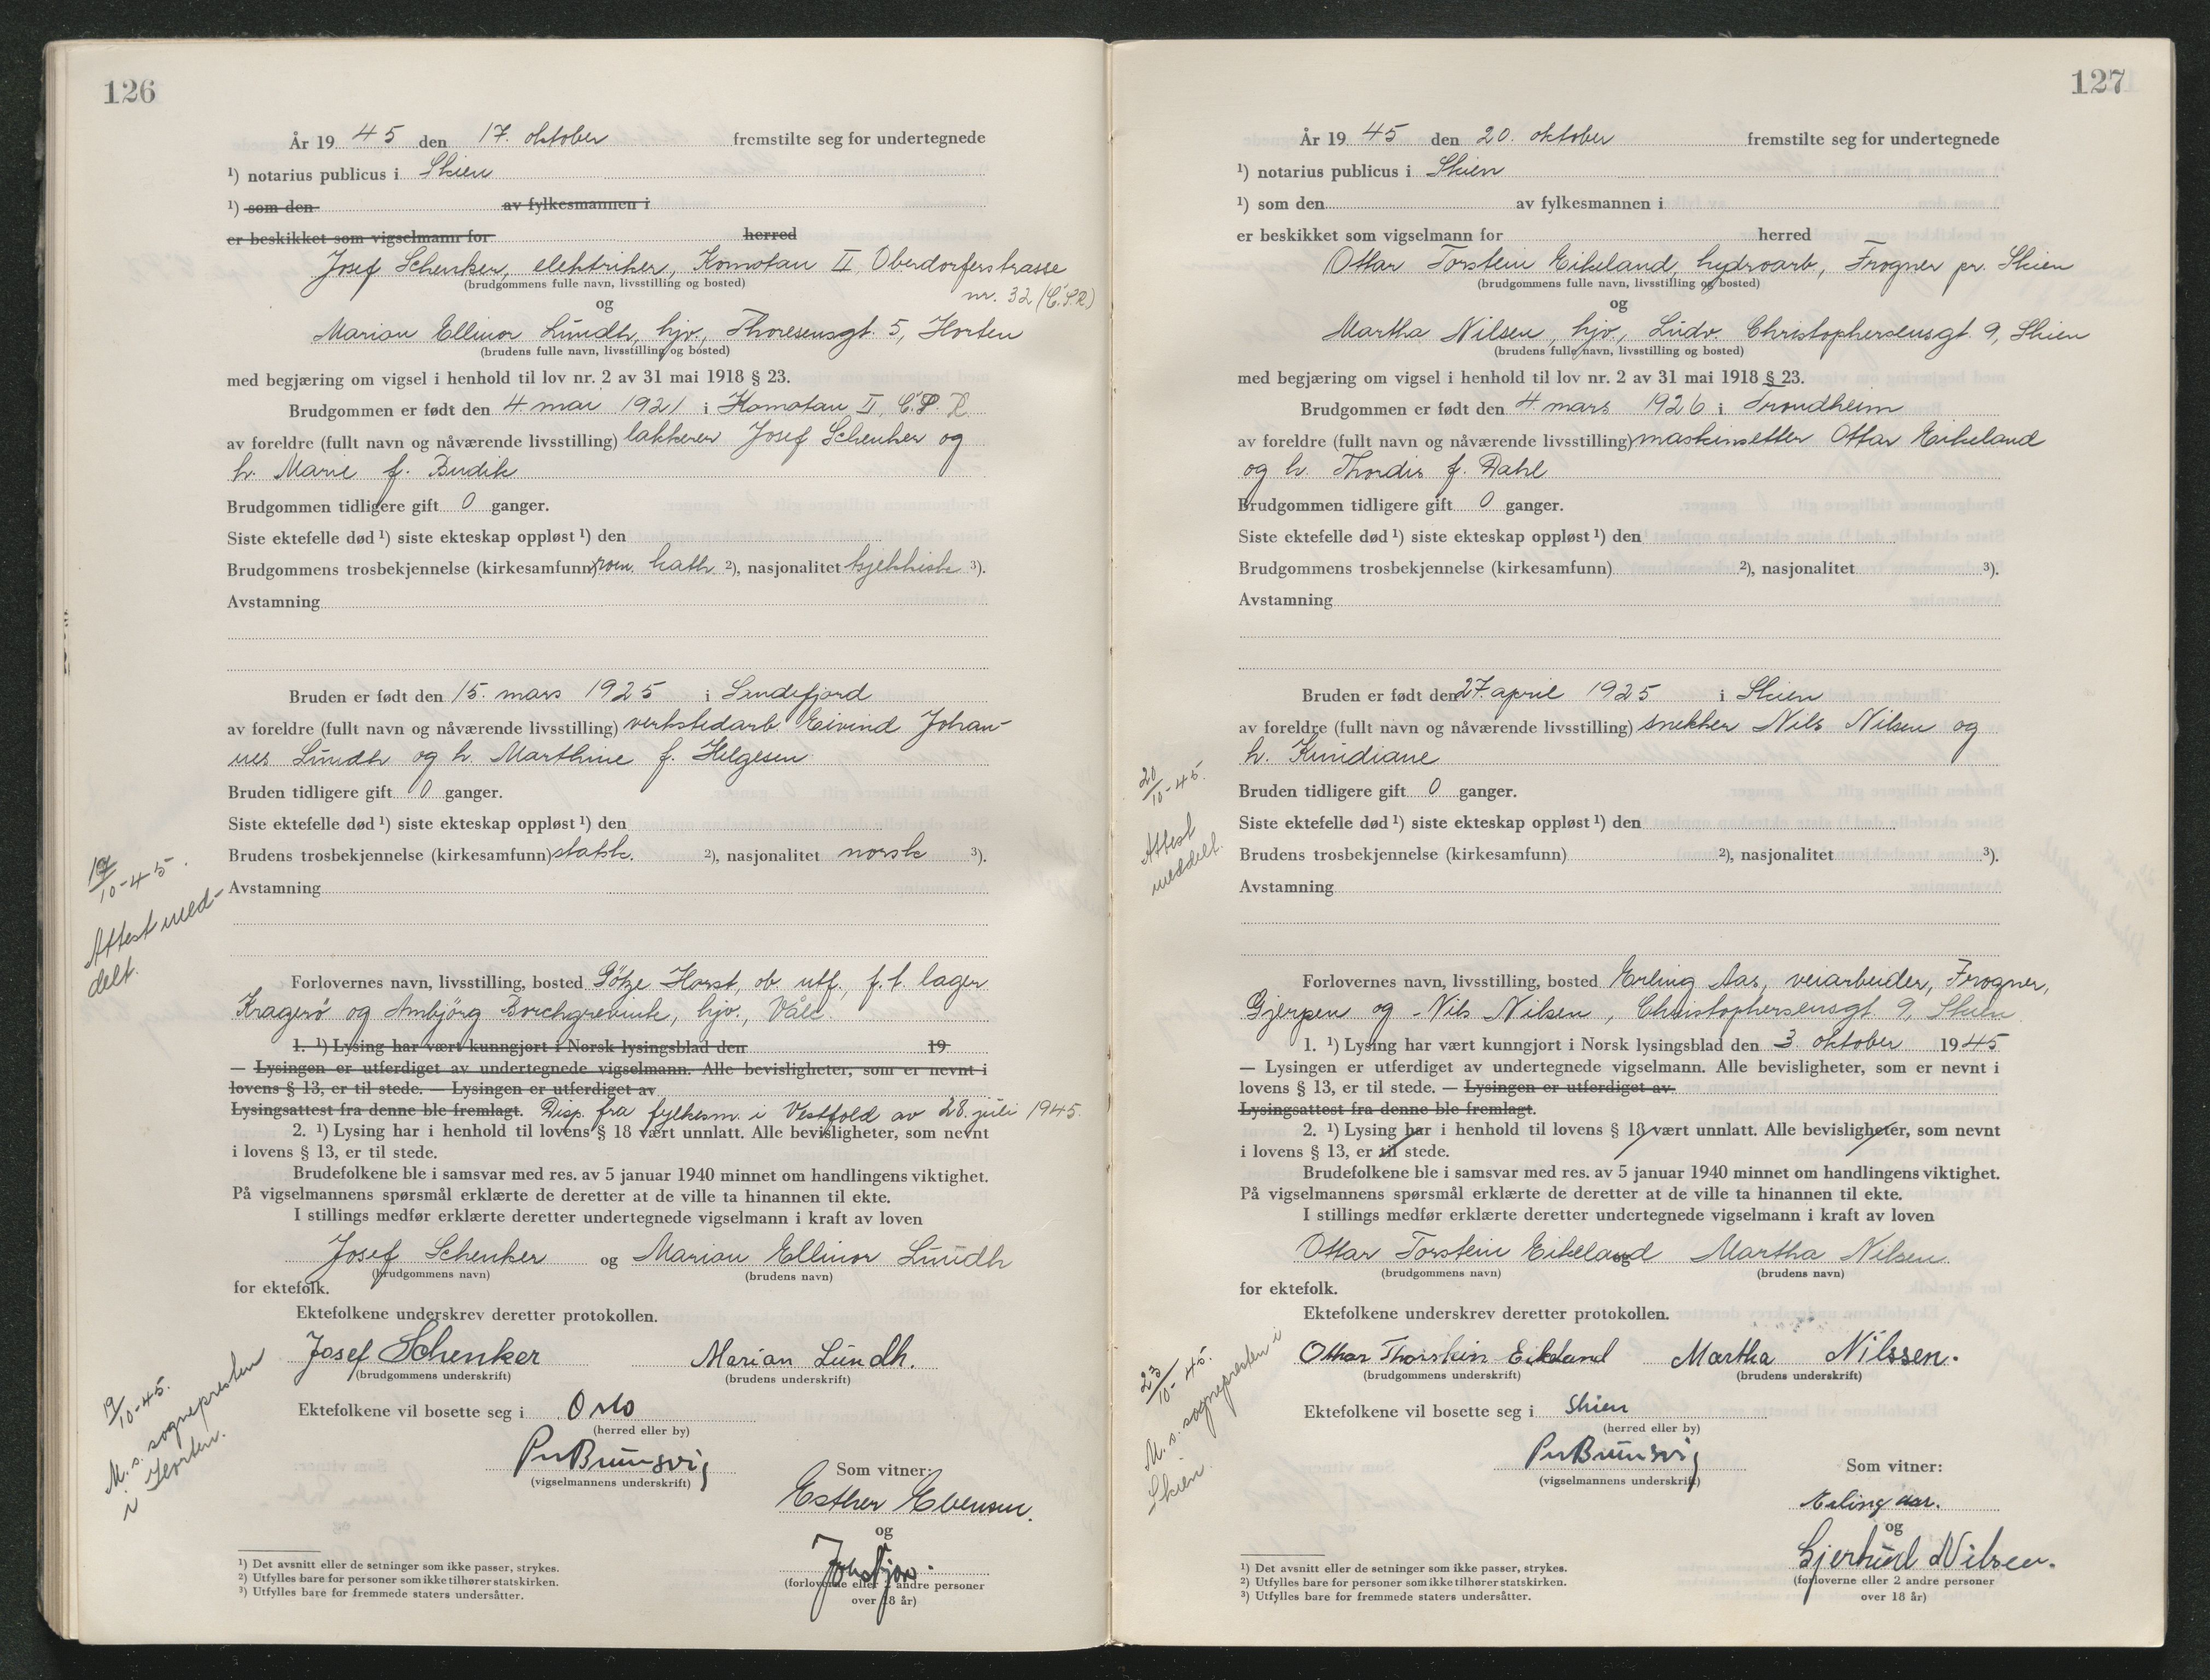 126
År 1945 den 17. oktober fremstilte seg for undertegnede
¹) notarius publicus i Skien
¹) som den av fylkesmannen i
er beskikket som vigselmann for herred
Josef Schenker, elektriker, Komotau II, Oberdorferstrasse
(brudgommens fulle navn, livsstilling og bosted) nr. 32 (Č.S.R.)
og
Marian Ellinor Lundh, hjv., Thoresensgt. 5, Horten
(brudens fulle navn, livsstilling og bosted)
med begjæring om vigsel i henhold til lov nr. 2 av 31 mai 1918 § 23.
Brudgommen er født den 4 mai 1921 i Komotau II, Č.S.R.
av foreldre (fullt navn og nåværende livsstilling) lakkerer Josef Schenker og
h. Marie f. Budik
Brudgommen tidligere gift 0 ganger.
Siste ektefelle død ¹) siste ekteskap oppløst ¹) den
Brudgommens trosbekjennelse (kirkesamfunn) rom. kath ²), nasjonalitet tsjekkisk ³).
Avstamning
Bruden er født den 15. mars 1925 i Sandefjord
av foreldre (fullt navn og nåværende livsstilling) verkstedarb. Eivind Johan-
nes Lundh og h. Marthine f. Helgesen
Bruden tidligere gift 0 ganger.
Siste ektefelle død ¹) siste ekteskap oppløst ¹) den
Brudens trosbekjennelse (kirkesamfunn) statsk. ²), nasjonalitet norsk ³).
Avstamning
17/10-45.
Attest med-
delt.
Forlovernes navn, livsstilling, bosted Götze Horst, ob. utf., f.t. lager
Kragerø og Ambjörg Borchgrevink, hjv., Våle.
1. ¹) Lysing har vært kunngjort i Norsk lysingsblad den 19
— Lysingen er utferdiget av undertegnede vigselmann. Alle bevisligheter, som er nevnt i
lovens § 13, er til stede. — Lysingen er utferdiget av
Lysingsattest fra denne ble fremlagt. Disp. fra fylkesm. i Vestfold av 28. juli 1945.
2. ¹) Lysing har i henhold til lovens § 18 vært unnlatt. Alle bevisligheter, som nevnt
i lovens § 13, er til stede.
Brudefolkene ble i samsvar med res. av 5 januar 1940 minnet om handlingens viktighet.
På vigselmannens spørsmål erklærte de deretter at de ville ta hinannen til ekte.
I stillings medfør erklærte deretter undertegnede vigselmann i kraft av loven
Josef Schenker og Marian Ellinor Lundh
(brudgommens navn) (brudens navn)
for ektefolk.
Ektefolkene underskrev deretter protokollen.
Josef Schenker Marian Lundh.
(brudgommens underskrift) (brudens underskrift)
Ektefolkene vil bosette seg i Oslo
(herred eller by)
19/10-45.
M. s. sognepresten
i Horten.
Brunsvig
(vigselmannens underskrift)
Som vitner:
Esther Evensen.
og
(forloverne eller 2 andre personer
over 18 år)
¹) Det avsnitt eller de setninger som ikke passer, strykes.
²) Utfylles bare for personer som ikke tilhører statskirken.
³) Utfylles bare for fremmede staters undersåtter.
127
År 1945 den 20. oktober fremstilte seg for undertegnede
¹) notarius publicus i Skien
¹) som den av fylkesmannen i
er beskikket som vigselmann for herred
Ottar Torstein Eikeland, hydroarb, Frogner pr. Skien
(brudgommens fulle navn, livsstilling og bosted)
og
Martha Nilsen, hjv., Ludv. Christophersensgt. 9, Skien
(brudens fulle navn, livsstilling og bosted)
med begjæring om vigsel i henhold til lov nr. 2 av 31 mai 1918 § 23.
Brudgommen er født den 4 mars 1926 i Trondheim
av foreldre (fullt navn og nåværende livsstilling) maskinsetter Ottar Eikeland
og h. Thordis f. Dahl
Brudgommen tidligere gift 0 ganger.
Siste ektefelle død ¹) siste ekteskap oppløst ¹) den
Brudgommens trosbekjennelse (kirkesamfunn) ²), nasjonalitet ³).
Avstamning
Bruden er født den 27. april 1925 i Skien
av foreldre (fullt navn og nåværende livsstilling) snekker Nils Nilsen og
h. Kundiane
Bruden tidligere gift 0 ganger.
Siste ektefelle død ¹) siste ekteskap oppløst ¹) den
Brudens trosbekjennelse (kirkesamfunn) ²), nasjonalitet ³).
Avstamning
20/10-45.
Attest
meddelt.
Forlovernes navn, livsstilling, bosted Erling Aas, veiarbeider, Frogner,
Gjerpen og Nils Nilsen, Christophersensgt. 9, Skien
1. ¹) Lysing har vært kunngjort i Norsk lysingsblad den 3. oktober 1945
— Lysingen er utferdiget av undertegnede vigselmann. Alle bevisligheter, som er nevnt i
lovens § 13, er til stede. — Lysingen er utferdiget av
Lysingsattest fra denne ble fremlagt.
2. ¹) Lysing har i henhold til lovens § 18 vært unnlatt. Alle bevisligheter, som nevnt
i lovens § 13, er til stede.
Brudefolkene ble i samsvar med res. av 5 januar 1940 minnet om handlingens viktighet.
På vigselmannens spørsmål erklærte de deretter at de ville ta hinannen til ekte.
I stillings medfør erklærte deretter undertegnede vigselmann i kraft av loven
Ottar Torstein Eikeland og Martha Nilsen
(brudgommens navn) (brudens navn)
for ektefolk.
Ektefolkene underskrev deretter protokollen.
Ottar Thorstein Eikeland Martha Nilssen.
(brudgommens underskrift) (brudens underskrift)
Ektefolkene vil bosette seg i Skien
(herred eller by)
23/10-45.
M. s. sognepresten i
Skien.
Brunsvig
(vigselmannens underskrift)
Som vitner:
Erling Aas.
og
Gjertrud Nilsen.
(forloverne eller 2 andre personer
over 18 år)
¹) Det avsnitt eller de setninger som ikke passer, strykes.
²) Utfylles bare for personer som ikke tilhører statskirken.
³) Utfylles bare for fremmede staters undersåtter.